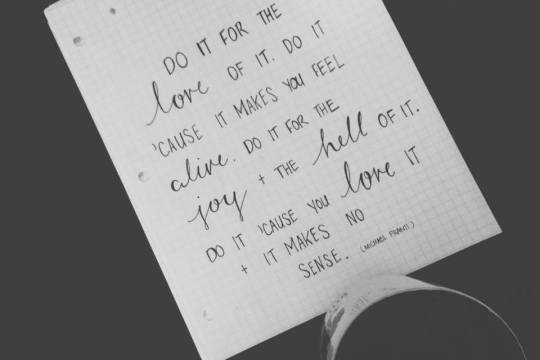 DO IT FOR THE
love OF IT. DO IT
'CAUSE IT MAKES YOU FEEL
alive. DO IT FOR THE
joy + THE hell OF IT.
DO IT 'CAUSE YOU love IT
+ IT MAKES NO
SENSE. (MICHAEL FRANTI)